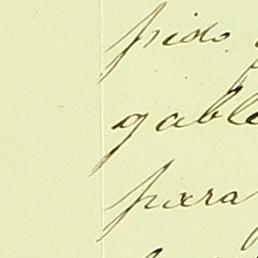 pido
gable
para